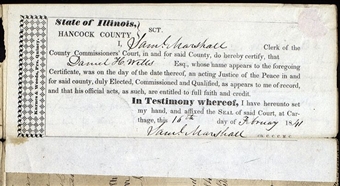 State of Illinois,
HANCOCK COUNTY, SCT.
I, Saml. Marshall Clerk of the
County Commissioners' Court, in and for said County, do hereby certify, that
Daniel H. Wells Esq., whose name appears to the foregoing
Certificate, was on the day of the date thereof, an acting Justice of the Peace in and
for said county, duly Elected, Commissioned and Qualified, as appears to me of record,
and that his official acts, as such, are entitled to full faith and credit.
In Testimony whereof, I have hereunto set
my hand, and affixed the SEAL of said Court, at Car-
thage, this 15th day of February 1841
Saml. Marshall C. C. C. H. C.